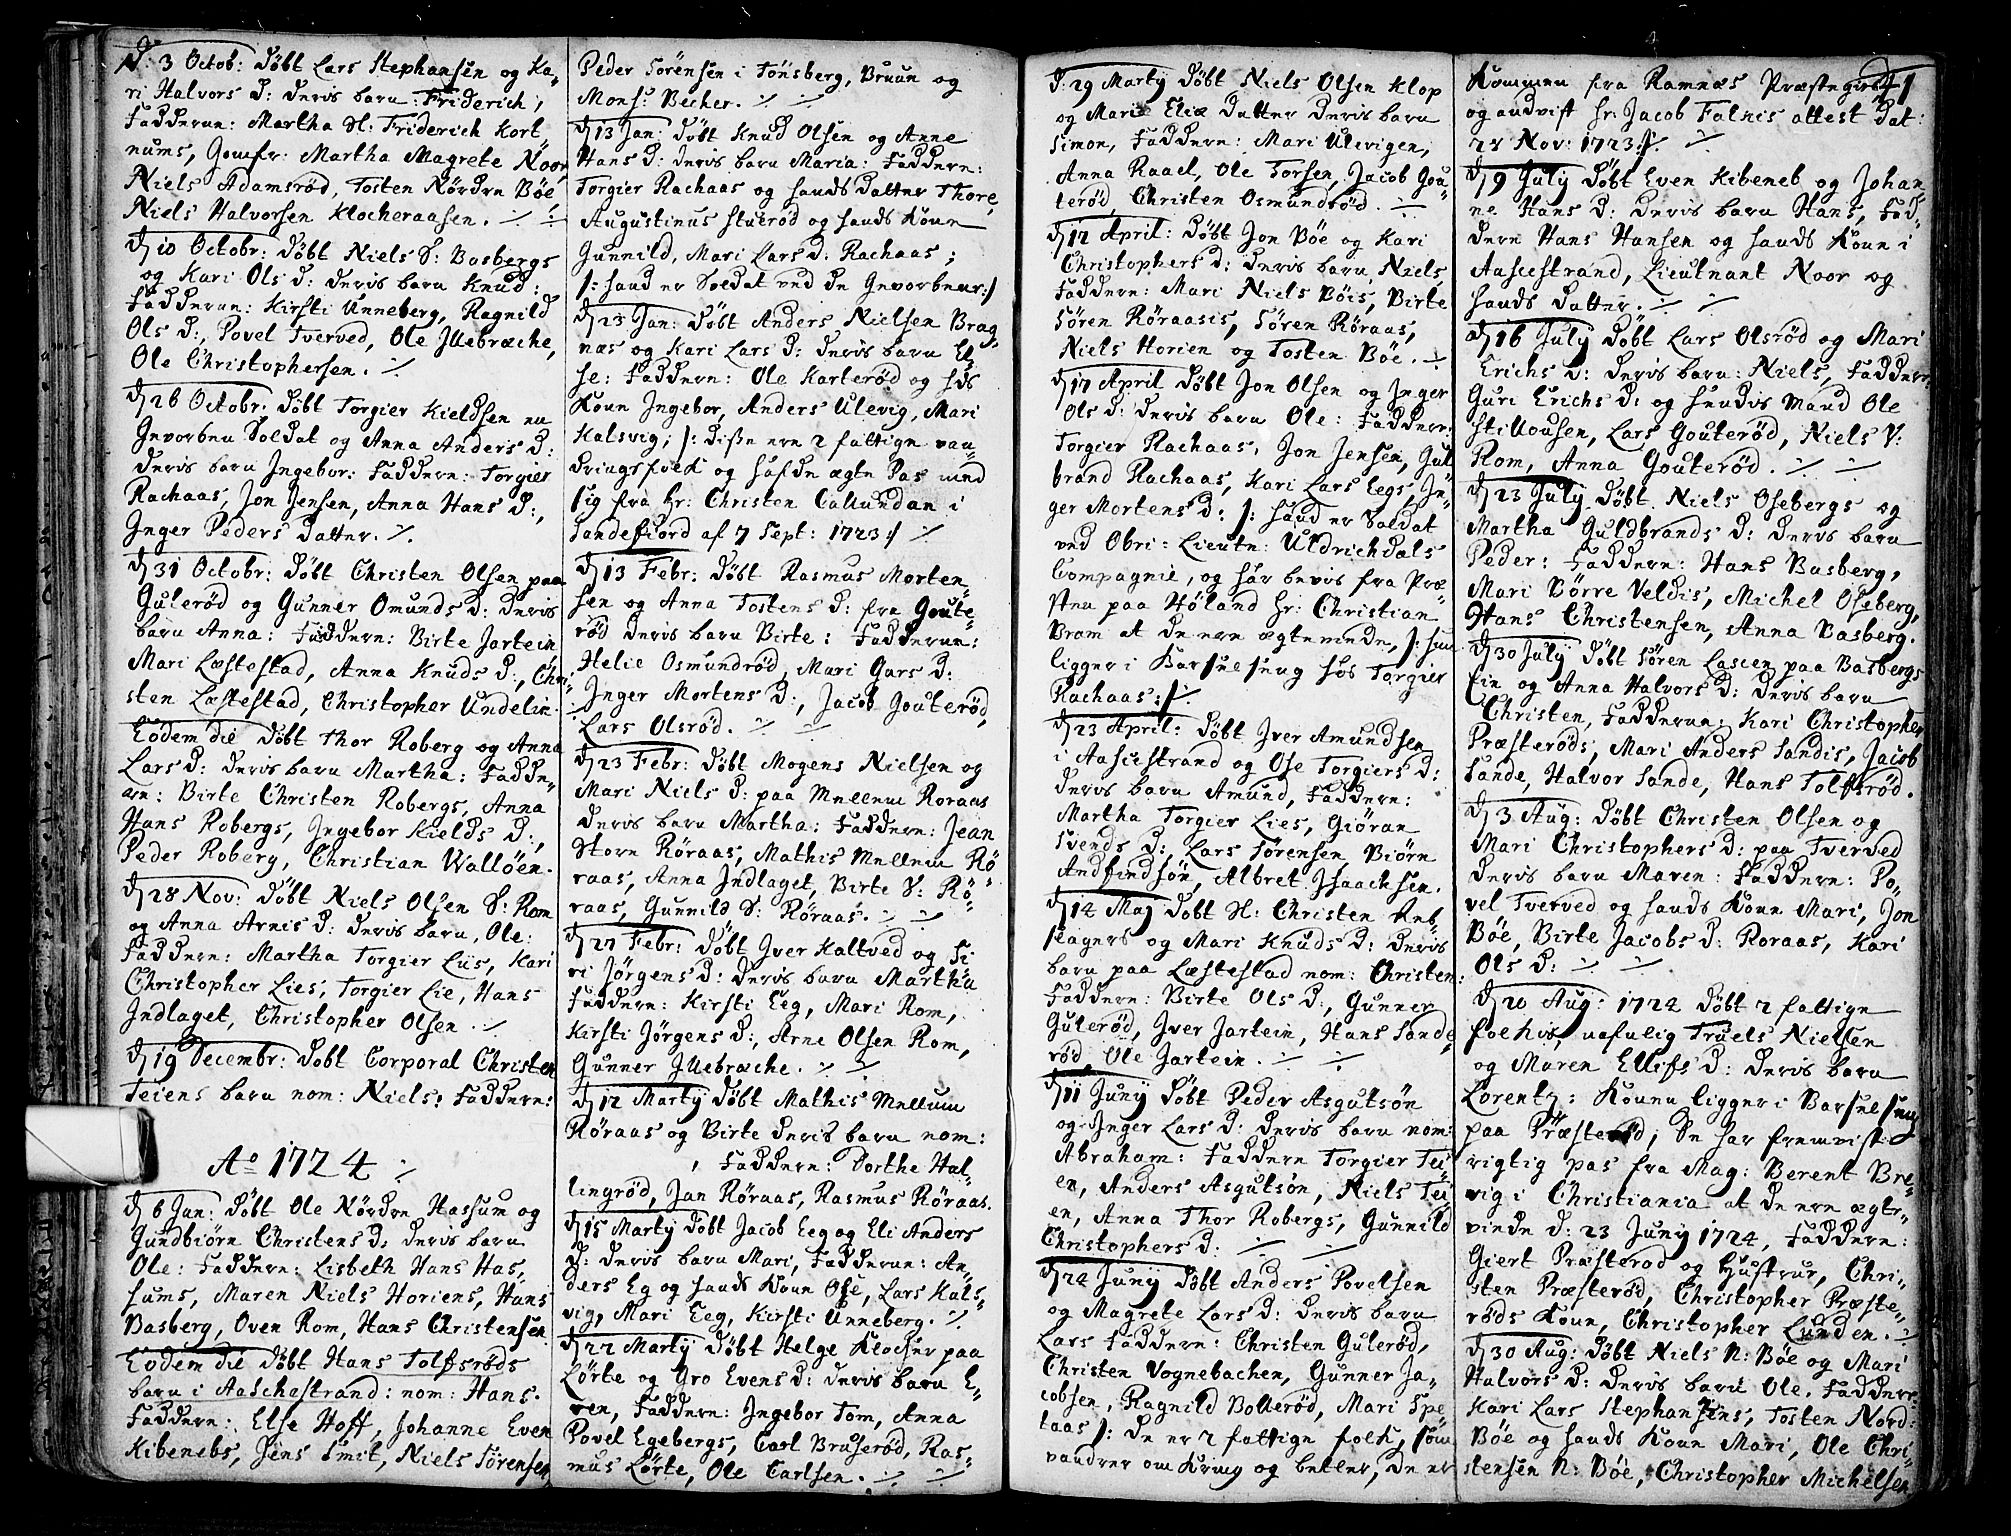 D. 3 Octob: døbt Lars Stephansen og Ka-
ri Halvors D: deris barn: Friderich,
Fadderne: Martha Sl: Friderich Kort
nums, Jomfr: Martha Magrete Noor,
Niels Adamsrød, Tosten Nørdre Bøe
Niels Halvorsen Klocheraasen.
D 10 Octobr: døbt Niels S: Basbergs
og Kari Ols D: deris barn Knud:
Fadderne: Kirsti Unneberg, Ragnild
Ols D:, Povel Tverved, Ole Jllebræche,
Ole Christophersen.
D 26 Octobr: døbt Torgier Kieldsen en
Gevorben Soldat og Anna Anders D:
deris barn Ingebor: Faddern: Torgier
Rachaas, Jon Jensen, Anna Hans D:,
Jnger Peders datter.
D 31 Octobr: døbt Christen Olsen paa
Gulerød og Gunner Omunds D: deris
barn Anna: Faddern: Birte Jartein,
Mari Læstestad, Anna Knuds D:, Chri-
sten Læstestad, Christopher Undelin.
Eodem die døbt Thor Roberg og Anna
Lars D: deris barn Martha: Fadde-
rn: Birte Christen Robergs, Anna
Hans Robergs, Jngebor Kields D:,
Peder Roberg, Christian Walløen.
D 28 Nov: døbt Niels Olsen S: Rom
og Anna Arnis D: deris barn, Ole:
Faddern: Martha Torgier Liis, Kari
Christopher Lies, Torgier Lie, Hans
Jndlaget, Christopher Olsen.
D 19 Decembr: Døbt Corporal Christen
Teiens barn nom: Niels: Faddern:
Ao 1724
D 6 Jan: døbt Ole Nørdre Hassum og
Gundbiørn Christens D: deris barn
Ole: Faddern: Lisbeth Hans Has-
sums, Maren Niels Horiens, Hans
Basberg, Oven Rom, Hans Christensen
Eodem die døbt Hans Tolfsrøds
barn i Aaschestrand: nom: Hans.
Faddern: Else Hoff, Johanne Even
Kibenebs, Jens Smit, Niels Sørensen
Peder Sørensen i Tønsberg, Bruun og
Monsr: Becher.
D 13 Jan: døbt Knud Olsen og Anne
Hans D: deris barn Maria: Faddern:
Torgier Rachaas og hands datter Thore,
Augustinus Stuerød og hands Kone
Gunnild, Mari Lars D: Rachaas;
/: hand er Soldat ved de Gevorbene :/
D 23 Jan: døbt Anders Nielsen Brag-
næs og Kari Lars D: deris barn El-
se: Faddern: Ole Karterød og hds
Kone Ingebor, Anders Ulevig, Mari
Kalsvig; /: disse ere 2 fattige van-
dringsfolck og hafde ægte Pas med
sig fra Hr: Christen Callundan i
Sandefiord af 7 Sept: 1723 :/
D 13 Febr: døbt Rasmus Morten-
sen og Anna Tostens D: fra Goute-
rød deris barn Birte: Fadderne:
Helie Osmundrød, Mari Gars D:
Jnger Mortens D:, Jacob Gouterød,
Lars Olsrød.
D 23 Febr: døbt Mogens Nielsen og
Mari Niels D: paa Mellem Roraas
deris barn Martha: Faddern: Jean
Store Røraas, Mathis Mellem Rø-
raas, Anna Jndlaget, Birte S: Rø-
raas, Gunnild S: Røraas.
D 27 Febr: døbt Jver Kaltved og Si-
ri Jørgens D: deris barn Martha
Faddern: Kirsti Eeg, Mari Rom,
Kirsti Jørgens D:, Arne Olsen Rom,
Gunner Jllebræche.
D 12 Martÿ døbt Mathis Mellum
Røraas og Birte deris barn nom:
, Faddern: Dorthe Hal-
lingrød, Jan Røraas, Rasmus Røraas.
D 15 Martÿ døbt Jacob Eeg og Eli Anders
D: deris barn Mari, Fadderne: An-
ders Eg og hands Kone Ose, Lars Kals-
vig, Mari Eeg, Kirsti Unneberg.
D 22 Martÿ døbt Helge Klocher paa
Lørte og Gro Evens D: deris barn E-
ven, Faddern: Ingebor Tom, Anna
Povel Egebergs, Carl Bruserød, Ras-
mus Lørte, Ole Carlsen.
D: 29 Martÿ døbt Niels Olsen Klop
og Marie Eliæ datter deris barn
Simon, Faddern: Mari Ulevigen,
Anna Raael, Ole Torsen, Jacob Gou-
terød, Christen Osmundrød.
D 12 April: døbt Jon Bøe og Kari
Christophers D: deris barn Niels,
Faddern: Mari Niels Bøis, Birte
Søren Røraasis, Søren Røraas,
Niels Horien og Tosten Bøe.
D 17 April døbt Jon Olsen og Jnger
Ols D: deris barn Ole: Faddern:
Torgier Rachaas, Jon Jensen, Gul
brand Rachaas, Kari Lars Eegs, Jn-
ger Mortens D: /: hand er Soldat
ved Obri: Lieutn: Uldrichdals
Compagnie, og har bevis fra Præ-
sten paa Høland Hr: Christian
Bram at de ere ægteviede, /: hun
ligger i Barselseng hos Torgier
Rachaas :/
D 23 April: døbt Jver Amundsen
i Aaschestrand og Ose Torgiers D:
deris barn Amund, Faddern:
Martha Torgier Lies, Giøran
Svends D: Lars Sørensen Biørn
Andfindsøn, Albret Jsaachsen.
D 14 Maj døbt Sl: Christen Reb-
slagers og Mari Knuds D: deris
barn paa Læstestad nom: Christen:
Faddern: Birte Ols D:, Gunner
Gulerød, Jver Jartein, Hans Sande
rød Ole Jartein.
D 11 Junÿ døbt Peder Asgutsøn
og Jnger Lars D: deris barn nom:
Abraham: Faddern Torgier Tei-
en, Anders Asgutsøn, Niels Tei-
en, Anna Thor Robergs, Gunnild
Christophers D:
D 24 Junÿ døbt Anders Povelsen
og Magrete Lars D: deris barn
Lars Faddern: Christen Gulerød,
Christen Vognebachen, Gunner Ja-
cobsen, Ragnild Bollerød, Mari Spe
laas /: de er 2 fattige folck, som
vandrer om Kring og betler, de er
41
Kommen fra Ramnæs Præstegield
og andvist Hr: Jacob Falnis attest dat:
28 Nov: 1723 :/
D 9 Julÿ døbt Even Kibeneb og Johan
ne Hans D: deris barn Hans, Fad-
dern Hans Hansen og hands Kone i
Aaschestrand, Lieutnant Noor og
hands datter.
D 16 Julÿ døbt Lars Olsrød og Mari
Erichs D: deris barn: Niels, Faddern
Guri Erichs D: og hendis Mand Ole
Stillousen, Lars Gouterød, Niels V:
Rom, Anna Gouterød.
D 23 Julÿ døbt Niels Osebergs og
Martha Guldbrands D: deris barn
Peder: Faddern: Hans Basberg,
Mari Børre Veldis, Michel Oseberg,
Hans Christensen, Anna Basberg.
D 30 Julÿ døbt Søren Lassen paa Basbergs
Eie og Anna Halvors D: deris barn
Christen, Fadderne: Kari Christopher
Præsterøds, Mari Anders Sandis, Jacob
Sande, Halvor Sande, Hans Tolfsrød.
D 3 Aug: døbt Christen Olsen og
Mari Christophers D: paa Tverved
deris barn Maren: Faddern: Po-
vel Tverved og hands Kone Mari, Jon
Bøe, Birte Jacobs D: Roraas, Kari
Ols D:
D 20 Aug: 1724 døbt 2 fattige
folchis, nafnlig Truels Nielsen
og Maren Ellifs D: deris barn
Lorentz: Konen ligger i Barselseng
paa Præsterød; De har fremvist
rigtig pas fra Mag: Berent Bre-
vig i Christiania at de ere ægte-
viede D: 23 Junÿ 1724, Faddern:
Giert Præsterød og Hustrue, Chri-
sten Præsterød, Christopher Præste-
røds Kone, Christopher Lunden.
D 30 Aug: døbt Niels N: Bøe og Mari
Halvors D: deris barn Ole. Faddern:
Kari Lars Stephansens, Tosten Nord:
Bøe og hands Kone Mari, Ole Chri-
stensen N: Bøe, Christopher Michelsen